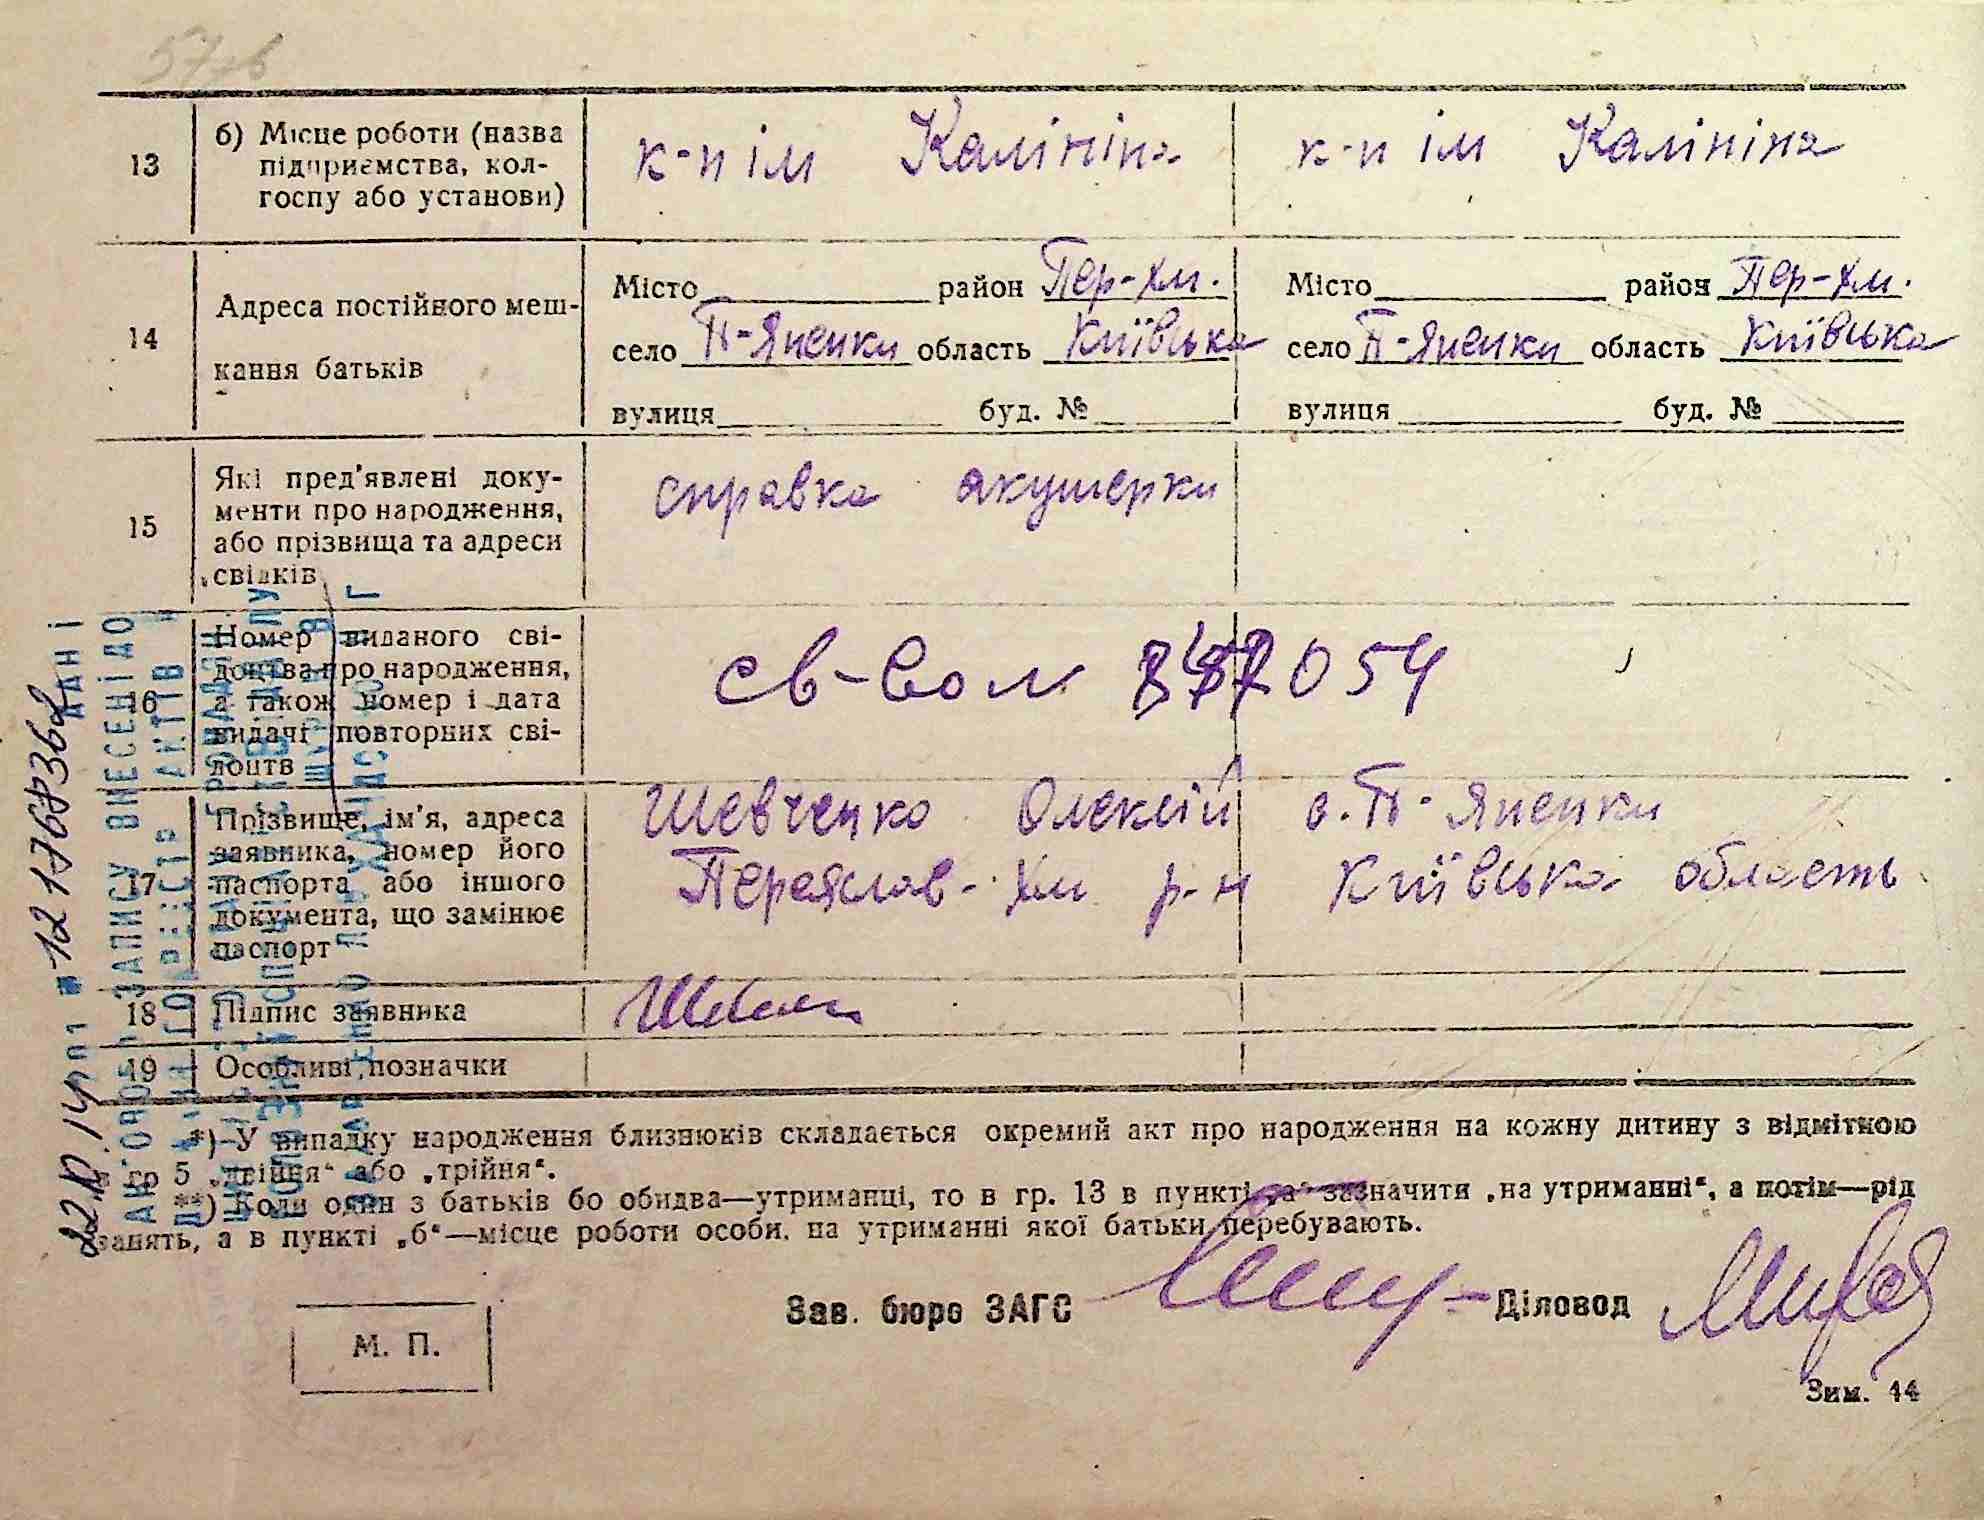 13
б) Місце роботи (назва
підприємства, кол-
госпу або установи)
к-п ім Калініна
к-п ім Калініна
14
Адреса постійного меш-
кання батьків
Місто район Пер-Хм.
село П-Яненки область Київська
вулиця буд. №
Місто район Пер-Хм.
село П-Яненки область Київська
вулиця буд. №
15
Які пред'явлені доку-
менти про народження,
або прізвища та адреси
свідків
справка акушерки
16
Номер виданого сві-
доцтва про народження,
а також номер і дата
видачі повторних сві-
доцтв
054
17
Прізвище, ім'я, адреса
заявника, номер його
паспорта або іншого
документа, що замінює
паспорт
Шевченко Олексій с. П-Яненки
Переяслав-Хм р-н Київська область
18
Підпис заявника
19
Особливі позначки
*) У випадку народження близнюків складається окремий акт про народження на кожну дитину з відміткою
в гр 5 „двійня“ або „трійня“.
**) Коли один з батьків бо обидва—утриманці, то в гр. 13 в пункті „а“ зазначити „на утриманні“, а потім—рід
занять, а в пункті „б“—місце роботи особи, на утриманні якої батьки перебувають.
Зав. бюро ЗАГС
Діловод
М. П.
Зим. 44